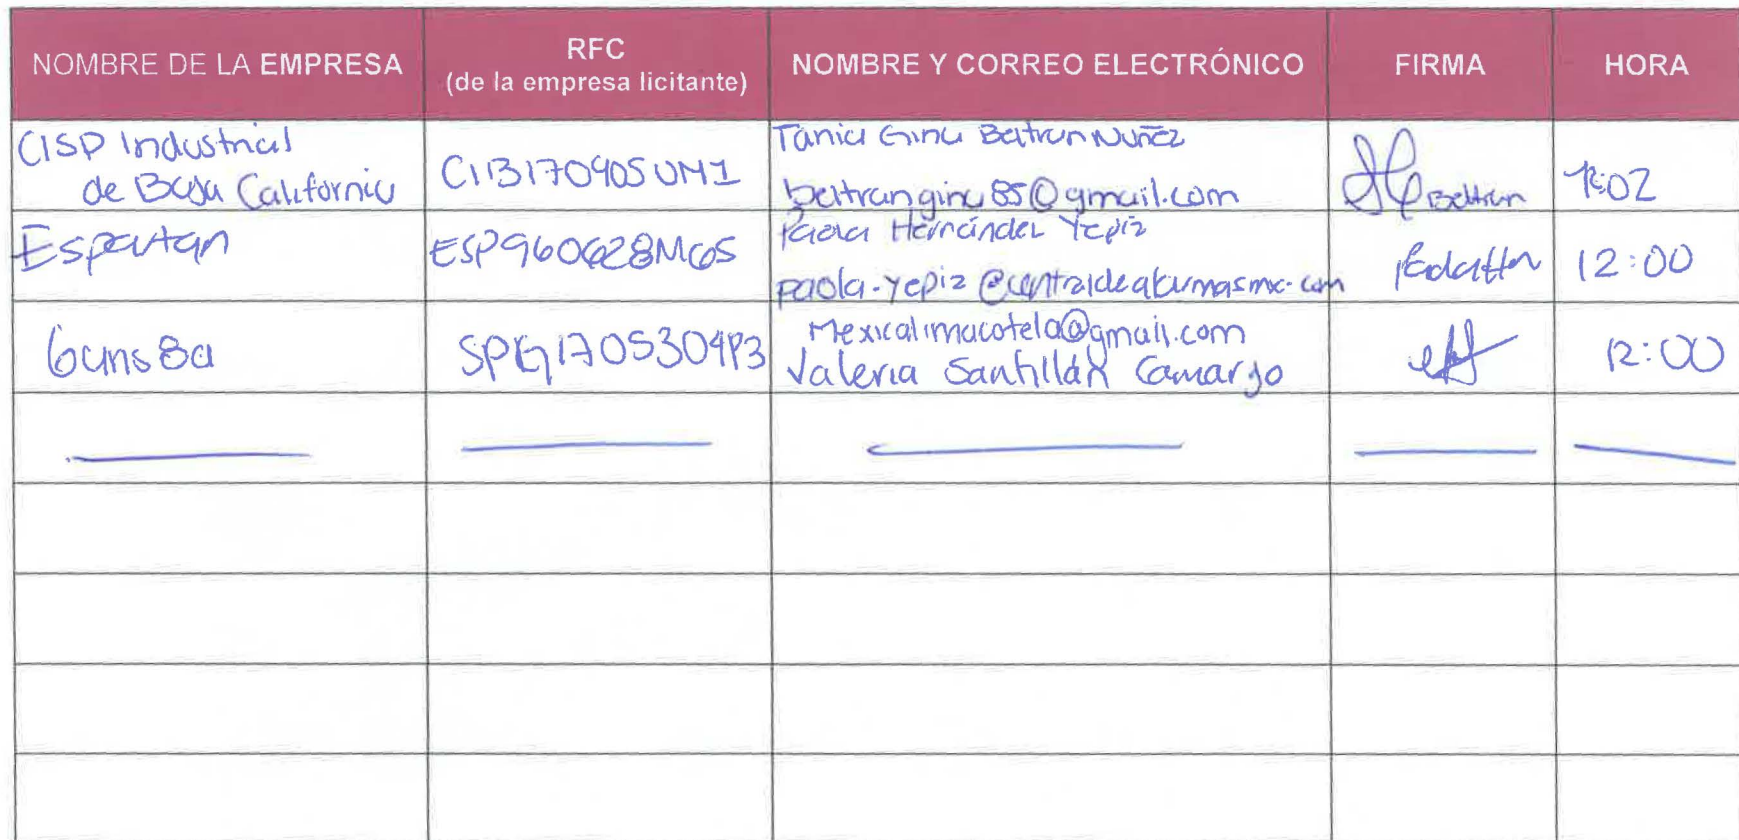 NOMBRE DE LA EMPRESA
RFC
(de la empresa licitante)
NOMBRE Y CORREO ELECTRÓNICO
FIRMA
HORA
CISP Industrial
de Baja California
CIB170905UM1
Tania Gina Beltran Nuñez
beltrangina85@gmail.com
Beltran
12:02
Espartan
ESP960628MG5
Paola Hernández Yepiz
12:00
Guns 8a
SPG1705304P3
Mexicalimacotela@gmail.com
Valeria Santillán Camargo
12:00